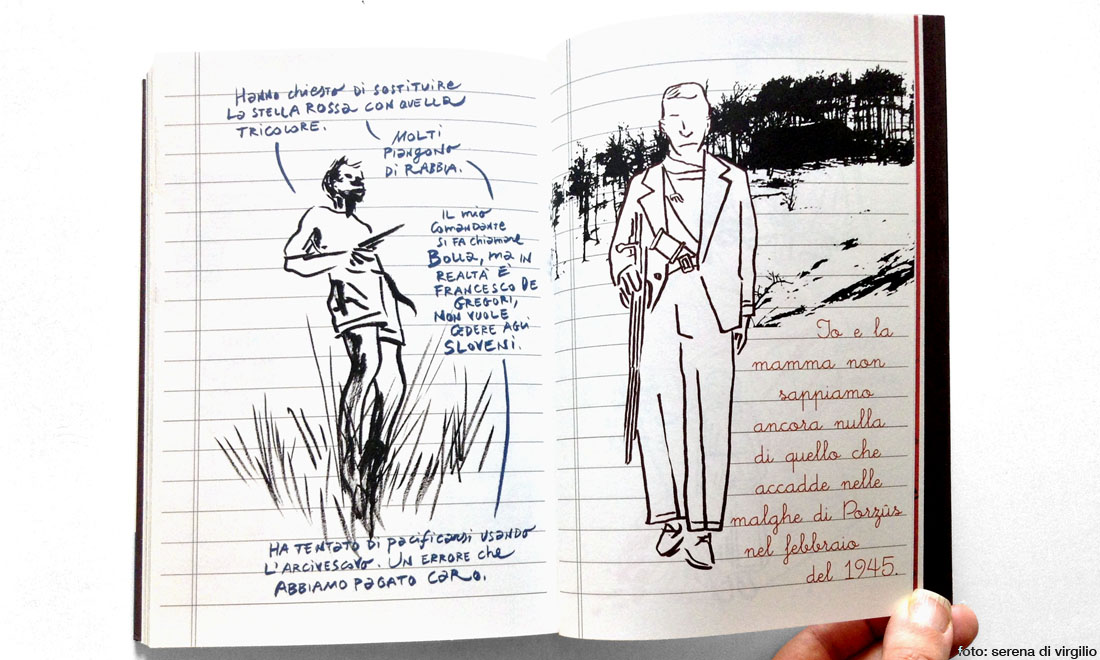 Hanno chiesto di sostituire
la stella rossa con quella
tricolore.
Molti
piangono
di rabbia.
Il mio
comandante
si fa chiamare
Bolla, ma in
realtà è
Francesco De
Gregori,
non vuole
cedere agli
sloveni.
Ha tentato di pacificarsi usando
l'arcivescovo. Un errore che
abbiamo pagato caro.
Io e la
mamma non
sappiamo
ancora nulla
di quello che
accadde nelle
malghe di Porzûs
nel febbraio
del 1945.
foto: serena di virgilio